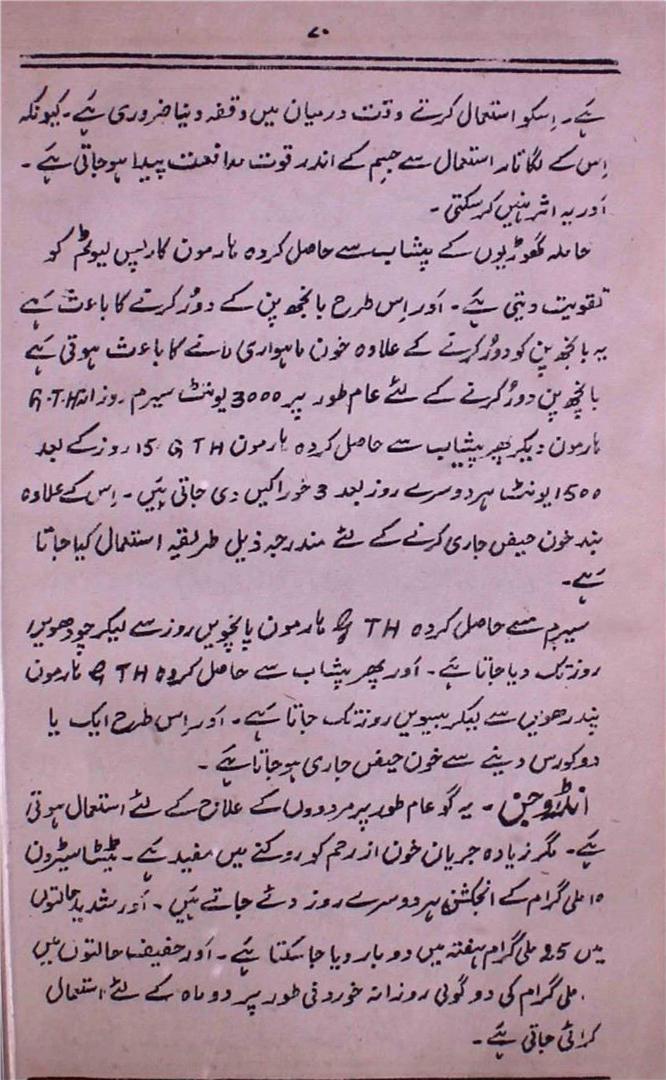 ۷۰
ہے۔ اِسکو استعمال کرتے وقت درمیان میں وقفہ دینا ضروری ہے۔ کیونکہ
اِس کے لگاتار استعمال سے جسم کے اندر قوت مدافعت پیدا ہوجاتی ہے۔
اَور یہ اثر نہیں کرسکتی۔
حاملہ گھوڑیوں کے پیشاب سے حاصل کردہ ہارمون کارپس لیوٹیم کو
تقویت دیتی ہے۔ اَور اِس طرح بانجھ پن کے دُور کرنے کا باعث ہے
یہ بانجھ پن کو دُور کرنے کے علاوہ خون ماہواری لانے کا باعث ہوتی ہے
بانجھ پن دورُ کرنے کے لئے عام طور پر 3000 یونٹ سیرم روزانہ G.T.H
ہارمون دیکر پھر پیشاب سے حاصل کردہ ہارمون G TH 15 روز کے بعد
1500 یونٹ ہر دوسرے روز بعد 3 خوراکیں دی جاتی ہَیں۔ اِس کے علاوہ
بند خون حیض جاری کرنے کے لئے مندرجہ ذیل طریقہ استعمال کیا جاتا
ہَے۔
سیرم سے حاصل کردہ G TH ہارمون پانچویں روز سے لیکر چودھویں
روز تک دیا جاتا ہے۔ اَور پھر پیشاب سے حاصل کردہ G TH ہارمون
پندرھویں سے لیکر بیسویں روز تک جاتا ہَے۔ اَور اِس طرح ایک یا
دو کورس دینے سے خون حیض جاری ہوجاتا ہَے۔
انڈروجن۔ یہ گو عام طور پر مردوں کے علاج کے لئے استعمال ہوتی
ہَے۔ مگر زیادہ جریان خون از رحم کو روکنے میں مفید ہَے۔ ٹیسٹاسٹیرون
۱۰ ملی گرام کے انجکشن ہر دوسرے روز دئے جاتے ہَیں۔ اَور شدید حالتوں
میں 25 ملی گرام ہفتہ میں دو بار دیا جا سکتا ہَے۔ اَور خفیف حالتوں میں
ملی گرام کی دو گولی روزانہ خوردنی طور پر دو ماہ کے لئے استعمال
کرائی جاتی ہَے۔